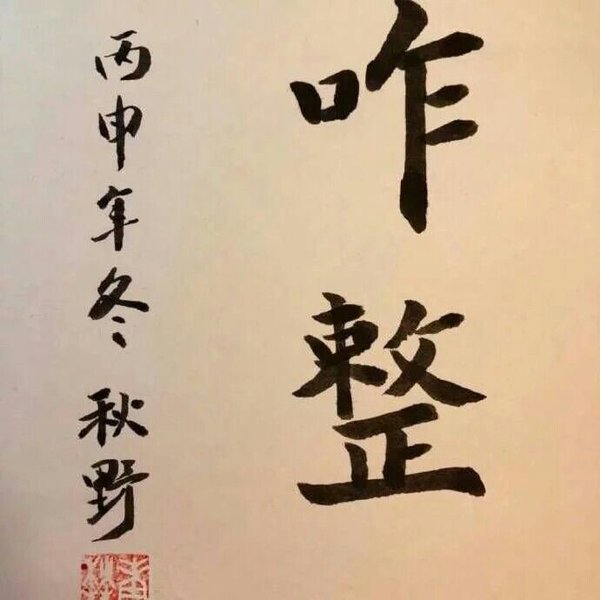 咋整
丙申年冬 秋野